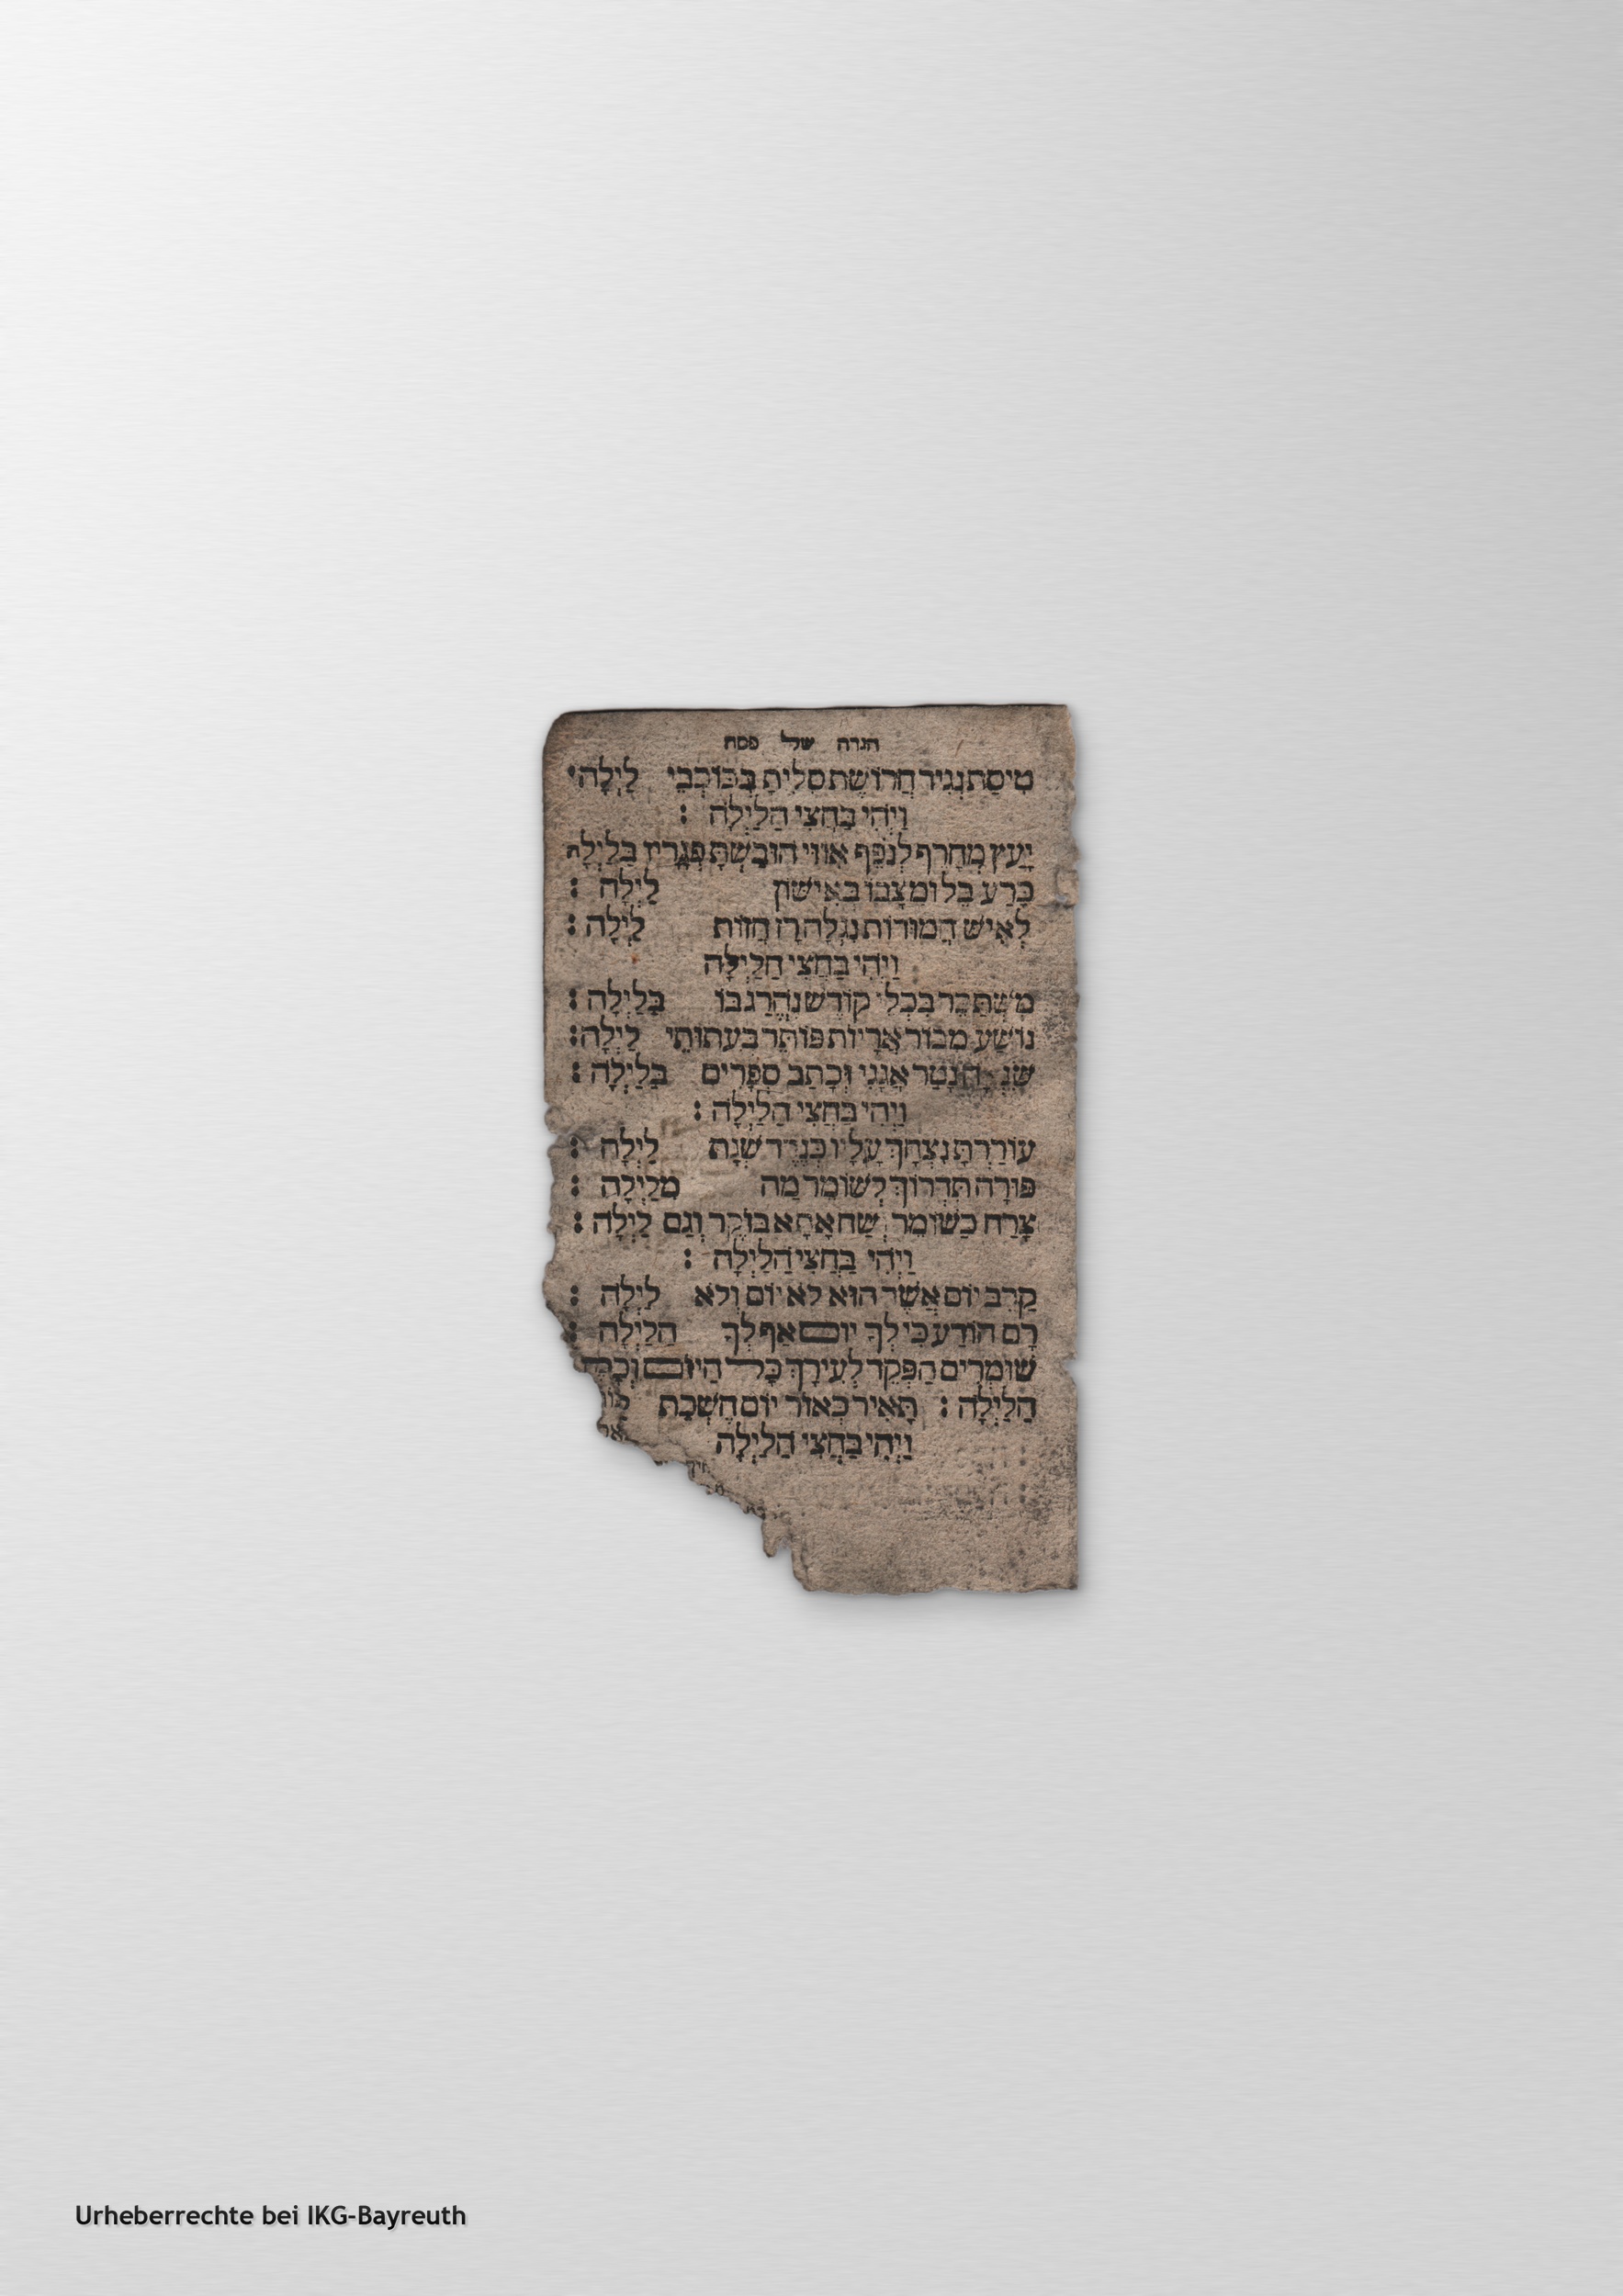 הגדה של פסח
טִיסַת נְגִיד חֲרוֹשֶׁת סִלִיתָ בְּכוֹכְבֵי לַיְלָה׃
וַיְהִי בַּחֲצִי הַלַּיְלָה׃
יָעַץ מְחָרֵף לְנוֹפֵף אִוּוּי הוֹבַשְׁתָּ פְּגָרָיו בַּלַּיְלָה
כָּרַע בֵּל וּמַצָּבוֹ בְּאִישׁוֹן לַיְלָה׃
לְאִישׁ חֲמוּדוֹת נִגְלָה רָז חֲזוֹת לַיְלָה׃
וַיְהִי בַּחֲצִי הַלַּיְלָה
מִשְׁתַּכֵּר בִּכְלֵי קוֹדֶשׁ נֶהֱרַג בּוֹ בַּלַּיְלָה׃
נוֹשַׁע מִבּוֹר אֲרָיוֹת פּוֹתֵר בִּעֲתוּתֵי לַיְלָה׃
נָטַר אֲגָגִי וְכָתַב סְפָרִים בַּלַּיְלָה׃
וַיְהִי בַּחֲצִי הַלַּיְלָה׃
עוֹרַרְתָּ נִצְחֲךָ עָלָיו בְּנֶדֶד שְׁנַת לַיְלָה׃
פּוּרָה תִדְרוֹךְ לְשׁוֹמֵר מַה מִלַּיְלָה׃
צָרַח כַּשּׁוֹמֵר וְשָׂח אָתָא בוֹקֶר וְגַם לַיְלָה׃
וַיְהִי בַּחֲצִי הַלַּיְלָה׃
קָרֵב יוֹם אֲשֶׁר הוּא לֹא יוֹם וְלֹא לַיְלָה׃
רָם הוֹדַע כִּי לְךָ יוֹם אַף לְךָ הַלַּיְלָה׃
שׁוֹמְרִים הַפְקֵד לְעִירְךָ כָּל הַיּוֹם וְכָל
הַלַּיְלָה׃ תָּאִיר כְּאוֹר יוֹם חֶשְׁכַת
וַיְהִי בַּחֲצִי הַלַּיְלָה
Urheberrechte bei IKG-Bayreuth